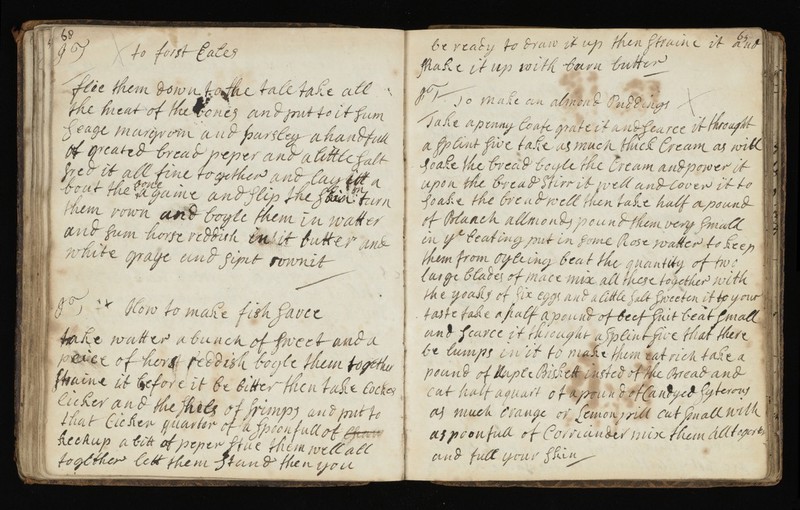 68
to forst Eales
flee them down to the tale take all
the meat of the bones and put to it sum
seage margrom and parsley a handfull
of greated bread peper and a little salt
sred it all fine together and lay itt a
bout the bone againe and slip the skin on turn
them rown and boyle them in watter
and sum horse reddish in it butter and
white and sipit rownit
How to make fish savce
take watter a bunch of sweet and a
peice of hors reddish boyle them together
straine it before it be bitter then take cockel
licker and the shels of srimps and put to
that licker quarter of a spoonfull of
kechup a bitt of peper stue them well all
together lett them stand then you
be ready to draw it up then straine it and
shake it up with burn butter
To make an almond Puddings
Take a penny loafe grate it and searce it throught
a splint sive take as much thick Cream as will
soake the bread boyle the Cream and power it
upon the bread stir it well and cover it to
soake the bread well then take half a pound
of Blanch allmonds pound them very small
in ye beating put in some Rose watter to keep
them from oyleing beat the quantity of two
large blades of mace mix all these together with
the yoaks of six eggs and a little salt sweeten it to your
taste take a half a pound of beef suit beat small
and searce it throught a splint sive that there
be lumps in it to make them eat rich take a
pound of Naple Biskett insted of the Bread and
eat half a quart of a pound of Candyed
as much orange or Lemon pill cut small with
a spoonfull of Corriander mix them all together
and full your skin